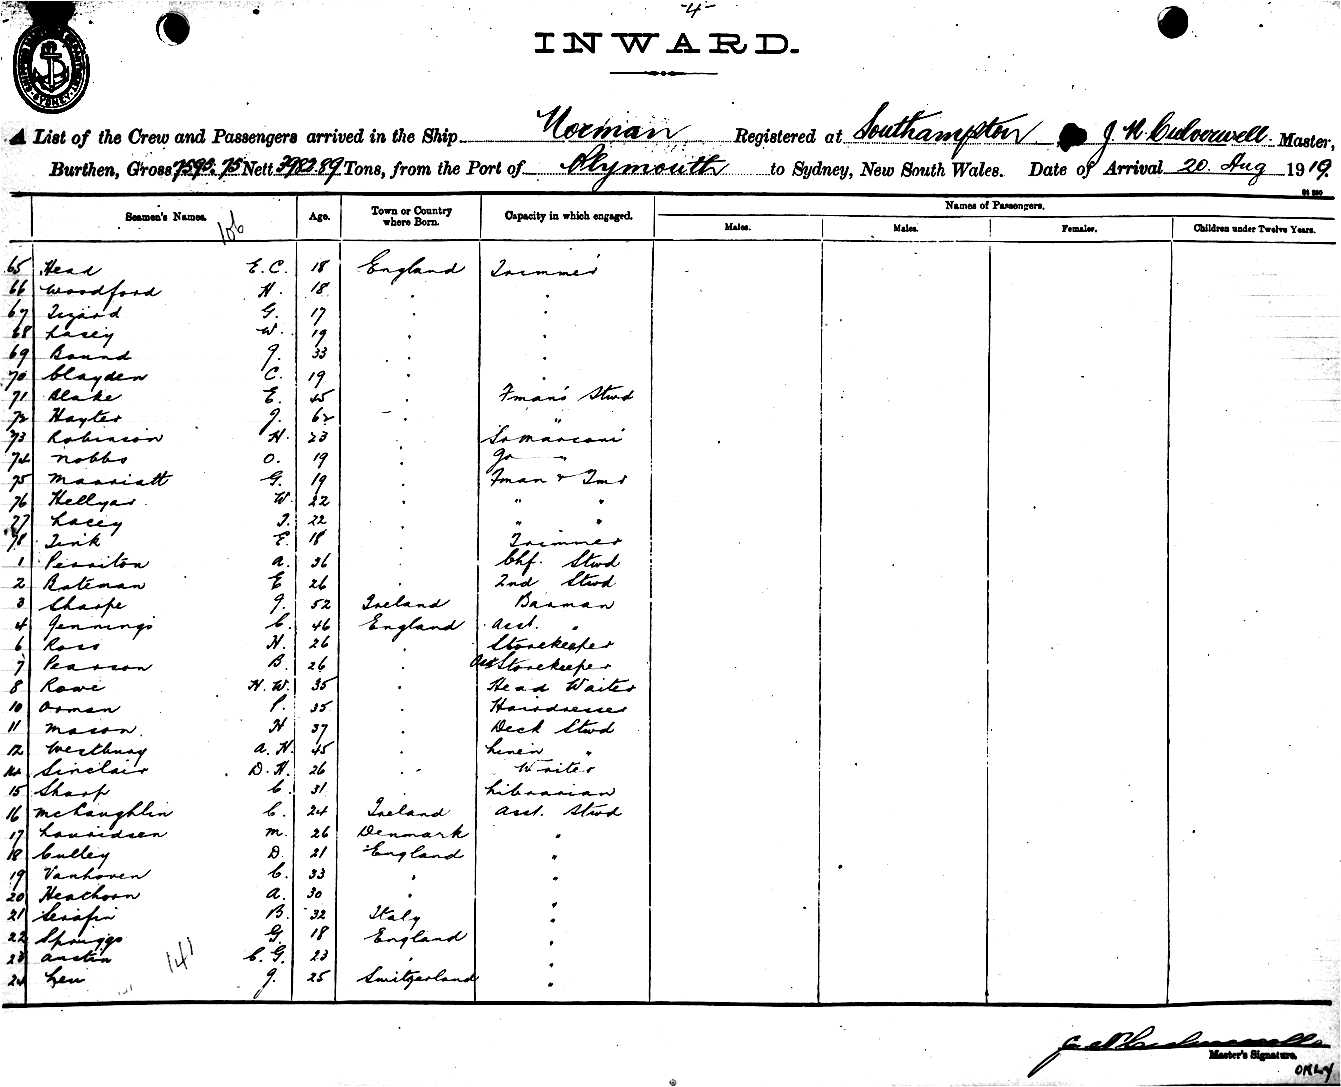 -4-
INWARD.
A List of the Crew and Passengers arrived in the Ship Norman Registered at Southampton J N Culverwell Master,
Burthen, Gross 7593.75 Nett 3982.89 Tons, from the Port of Plymouth to Sydney, New South Wales. Date of Arrival 20. Aug 1919.
Names of Passengers.
Seamen's Names. 106 Age. Town or Country where Born. Capacity in which engaged. Males. Males. Females. Children under Twelve Years.
65 Head E. C. 18 England Trimmer
66 Woodford H. 18 " "
67 Tizard G. 17 " "
68 Lacey W. 19 " "
69 Bound J. 33 " "
70 Clayden C. 19 " "
71 Blake E. 45 " Fman's Stwd
72 Hayter J. 62 " "
73 Robinson H. 23 " Sr Marconi
74 Nobbs O. 19 " Jr "
75 Marriatt G. 19 " Fman & Tmr
76 Hellyar W. 22 " " "
77 Lacey T. 22 " " "
78 Tink E. 18 " Trimmer
1 Perriton A. 36 " Chf. Stwd
2 Bateman E 26 " 2nd Stwd
3 Sharpe J. 52 Ireland Barman
4 Jennings C. 46 England Asst. "
6 Ross H. 26 " Storekeeper
7 Pearson B. 26 " Asst Storekeeper
8 Rowe H. W. 35 " Head Waiter
10 Orman P. 35 " Hairdresser
11 Mason H 37 " Deck Stwd
12 Westbury A. H. 45 " Linen "
14 Sinclair D. H. 26 " Writer
15 Sharp C. 31 " Librarian
16 McLaughlin C. 24 Ireland Asst. Stwd
17 Lauridsen M. 26 Denmark "
18 Culley D. 21 England "
19 Vanhoven C. 33 " "
20 Heathorn A. 30 " "
21 Serafin B. 32 Italy "
22 Spriggs G. 18 England "
23 Austin C. G. 23 " "
24 Leu J. 25 Switzerland "
141
Master's Signature.